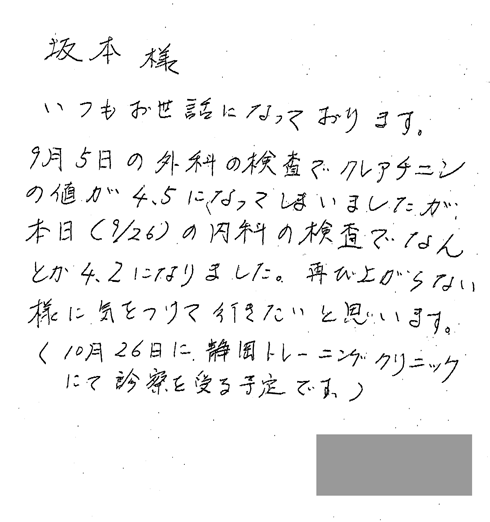 坂本 様
いつもお世話になっております。
9月5日の外科の検査でクレアチニン
の値が4.5になってしまいましたが、
本日(9/26)の内科の検査でなん
とか4.2になりました。再び上がらない
様に気をつけて行きたいと思います。
(10月26日に、静岡トレーニングクリニック
にて診察を受る予定です。)